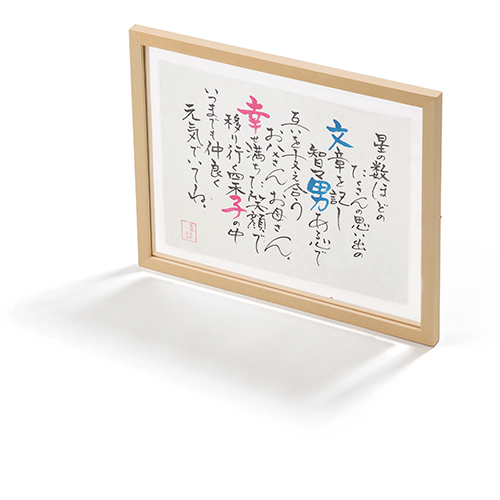 星の数ほどの
たくさんの思い出の
文章を記し
智勇男ある心で
互いを支え合う
お父さんお母さん。
幸せ満ちた笑顔で
移り行く四季子の中
いつまでも仲良く
元気でいてね。